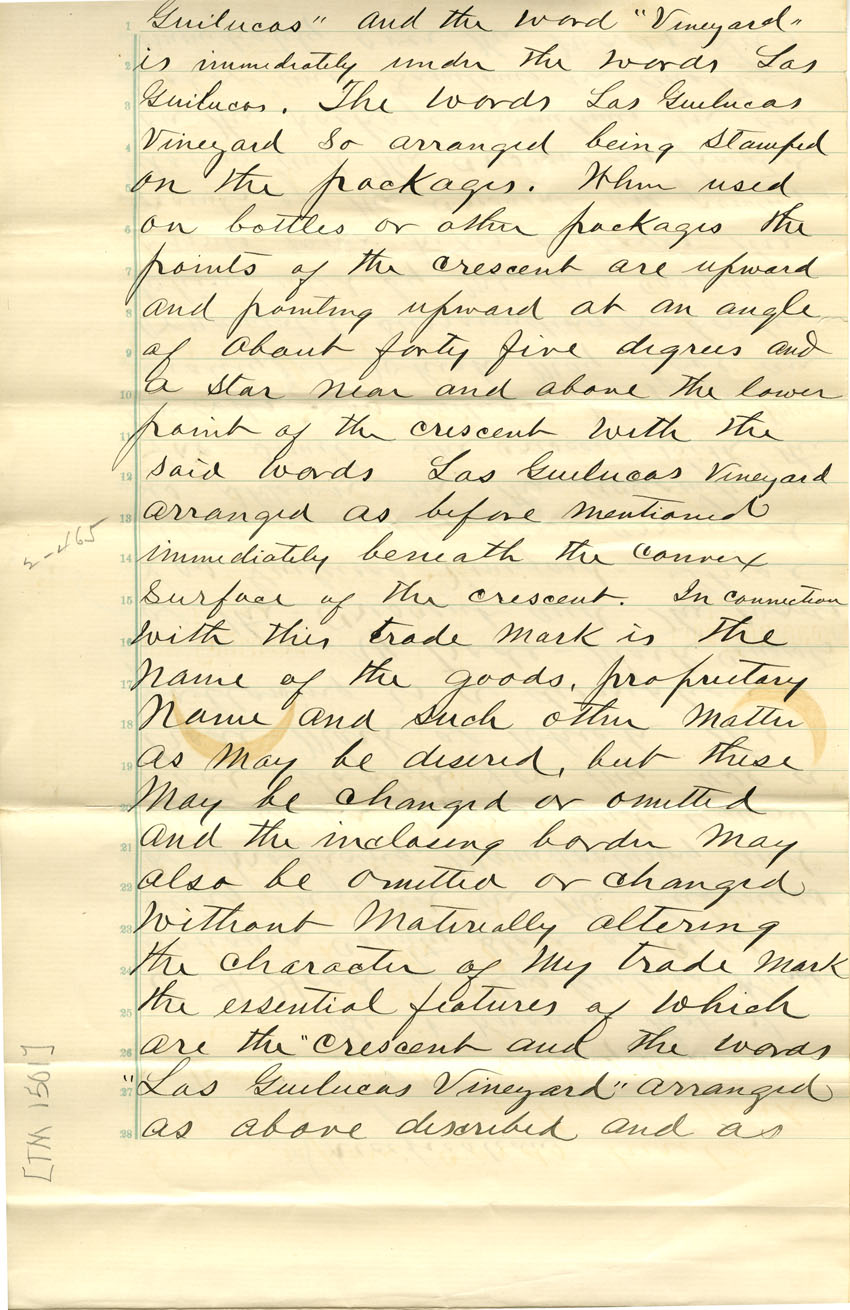 Guilucos" and the word "Vineyard"
is immediately under the words Las
Guilucos. The words Las Guilucas
Vineyard so arranged being stamped
on the packages. When used
on bottles or other packages the
points of the crescent are upward
and pointing upward at an angle
of about forty five degrees and
a star near and above the lower
point of the crescent with the
said words Las Guilucas Vineyard
arranged as before mentioned
immediately beneath the convex
surface of the crescent. In connection
with this trade mark is the
name of the goods, proprietary
name and such other matter
as may be desired, but these
may be changed or omitted
and the inclosing border may
also be omitted or changed
without materially altering
the character of my trade mark
the essential features of which
are the "crescent and the words
"Las Guilucas Vineyard" arranged
as above described and as
2-465
[TM 1501]
1
2
3
4
5
6
7
8
9
10
11
12
13
14
15
16
17
18
19
20
21
22
23
24
25
26
27
28